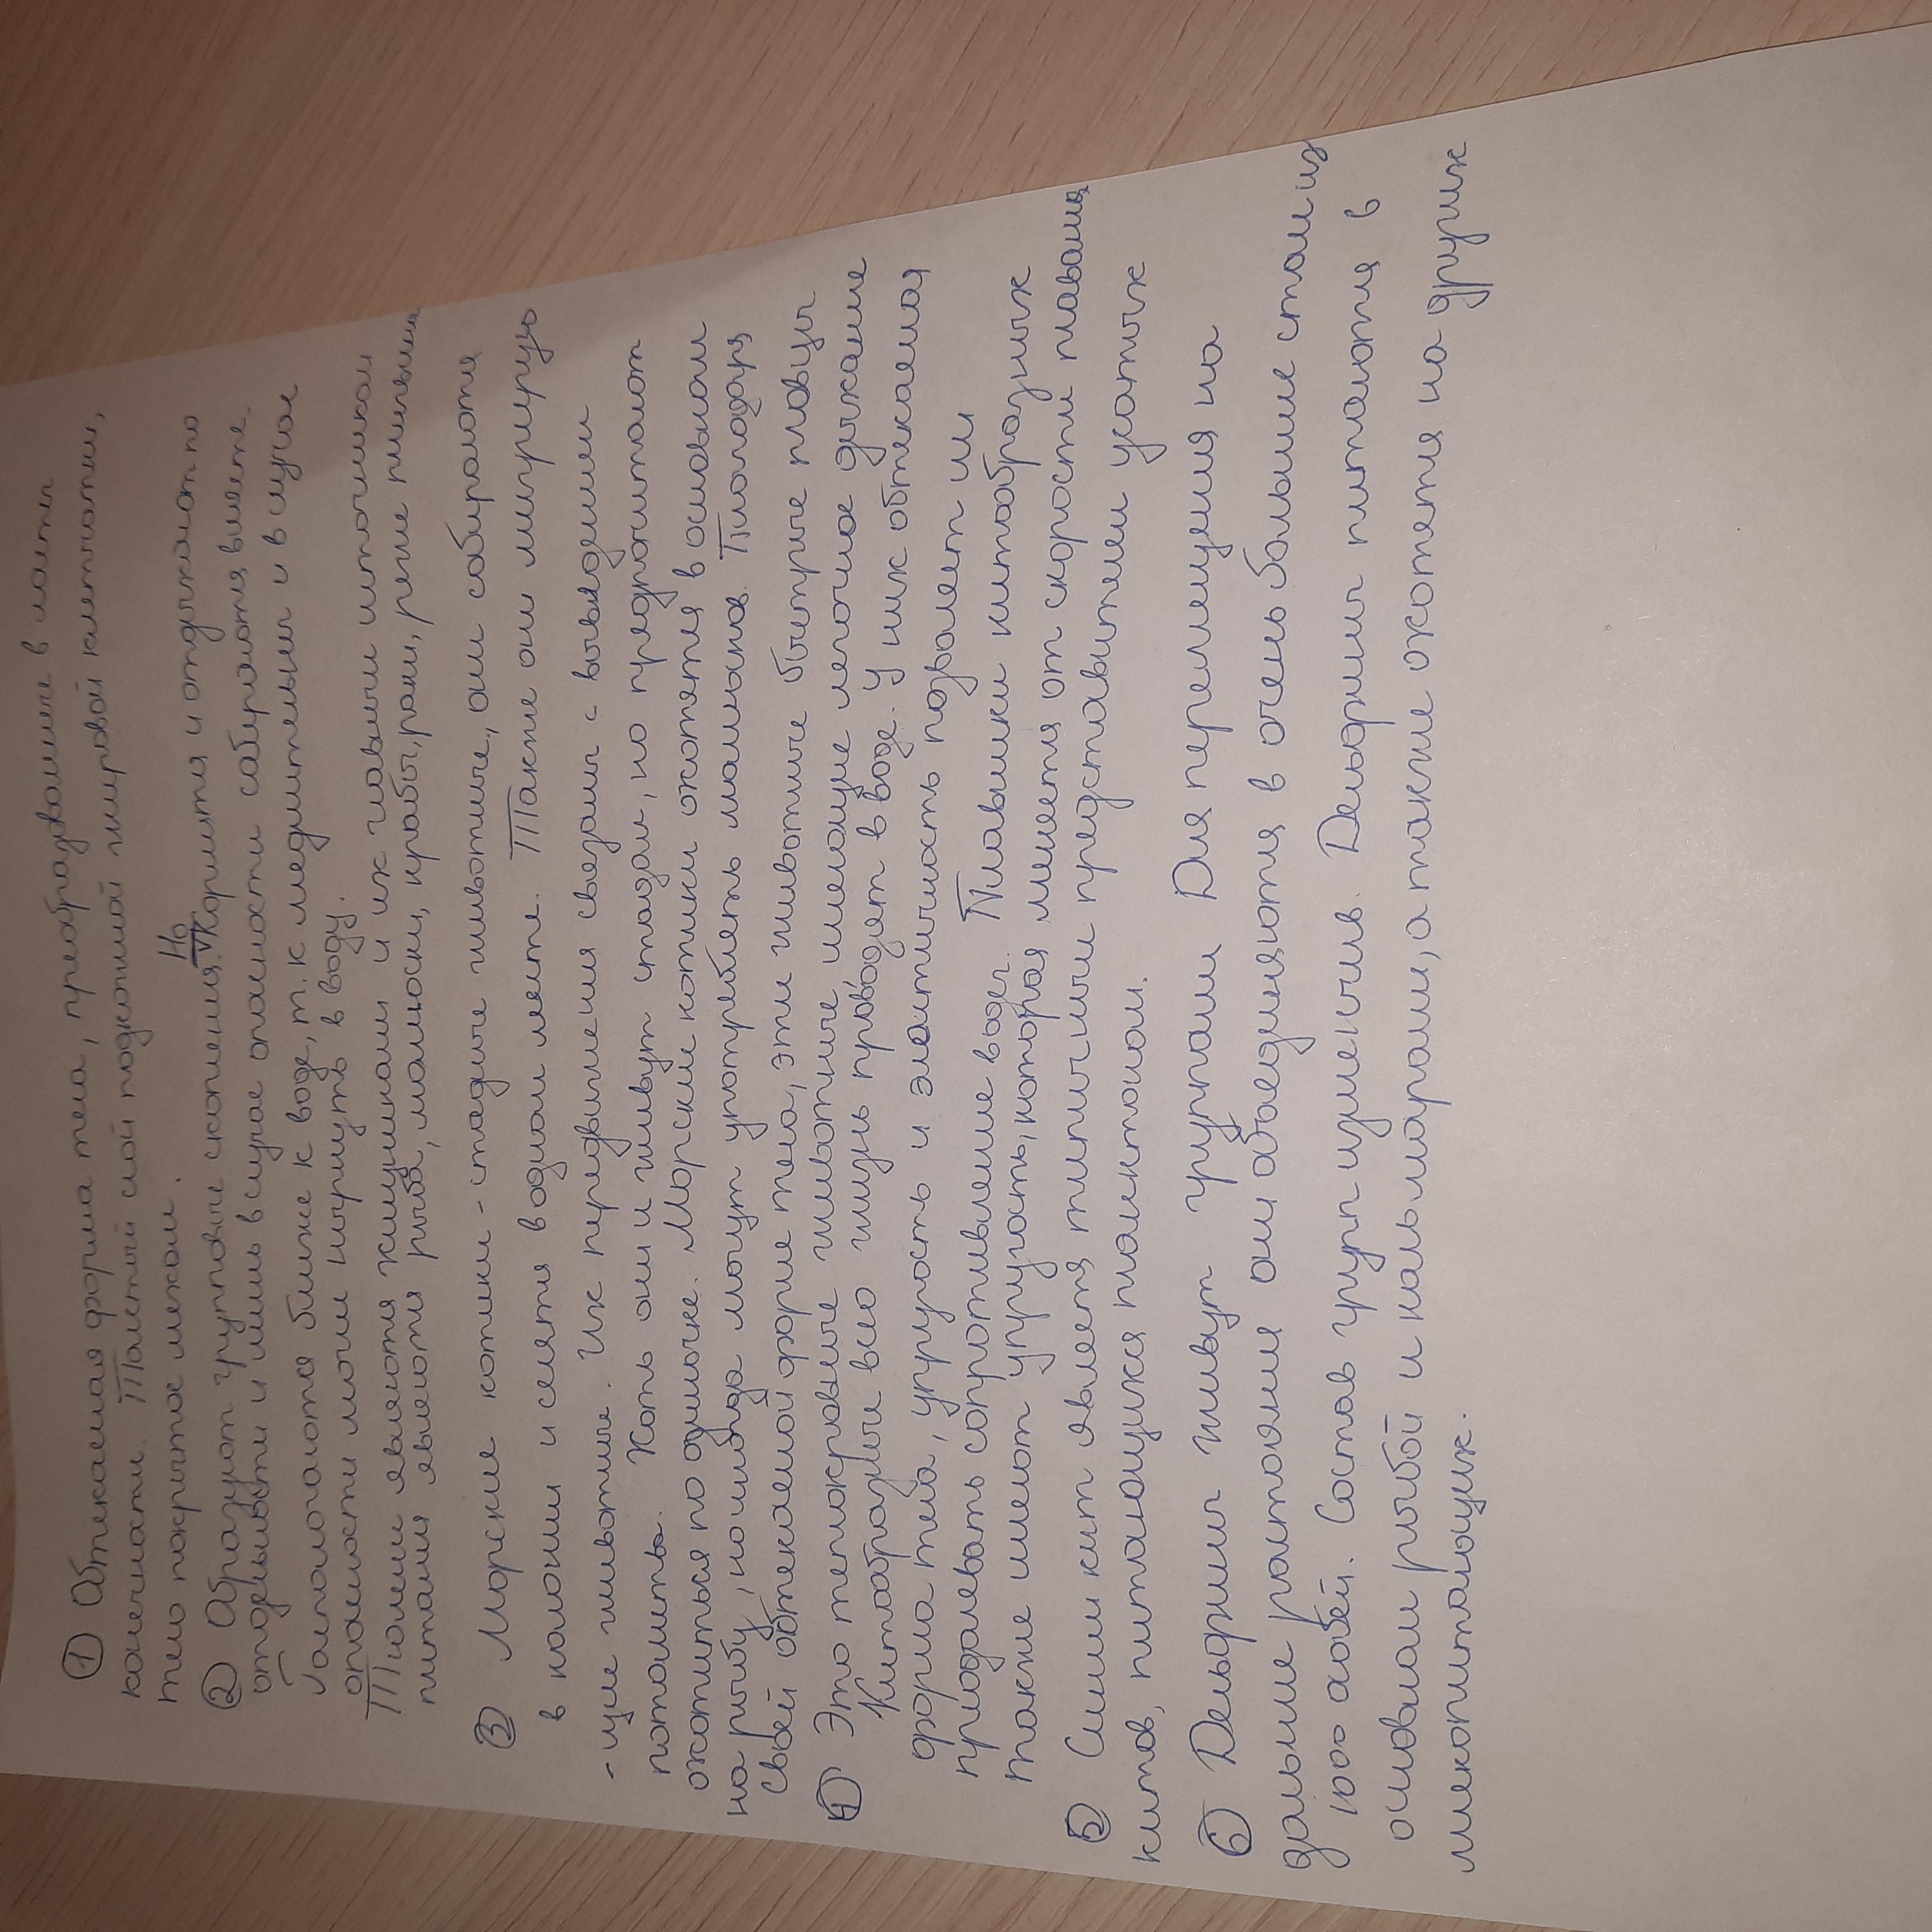 ① Обтекаемая форма тела, преобразованые в ласты
конечности. Толстый слой подкожной жировой клетчатки,
тело покрытое мехом.
② Образуют групповые скопления. Но Кормится и отдыхают по
отдельности и лишь в случае опасности собираются вместе.
Располагаются ближе к воде, т. к медлительны и в случае
опасности могли нырнуть в воду.
Тюлени являются хищниками и их главным источником
питания являются рыба, моллюски, крабы, раки, реже пингвины
③ Морские котики - стадные животные, они собираются
в колонии и селятся в одном месте. Также они мигрирую
-щие животные. Их передвижения связаны с выведением
потомства. Хоть они и живут стадом, но предпочитают
охотиться по одиночке. Морские котики охотятся в основном
на рыбу, но иногда могут употреблять моллюсков. Благодаря
своей обтекаемой форме тела, эти животные быстрые пловцы
④ Это теплокровные животные, имеющие легочное дыхание
Китообразные всю жизнь проводят в воде. У них обтекаемая
форма тела, упругость и эластичность позволяет им
приодалевать сопротивление воды. Плавники китообразных
также имеют упругость, которая меняется от скорости плавания
⑤ Синий кит является типичным представителем усатых
китов, питающихся планктоном.
⑥ Дельфины живут группами Для перемещения на
дальние растояния они объединяются в очень большие стаи из
1000 особей. Состав групп изменчив. Дельфины питаются в
основном рыбой и кальмарами, а также охотятся на других
млекопитающих.